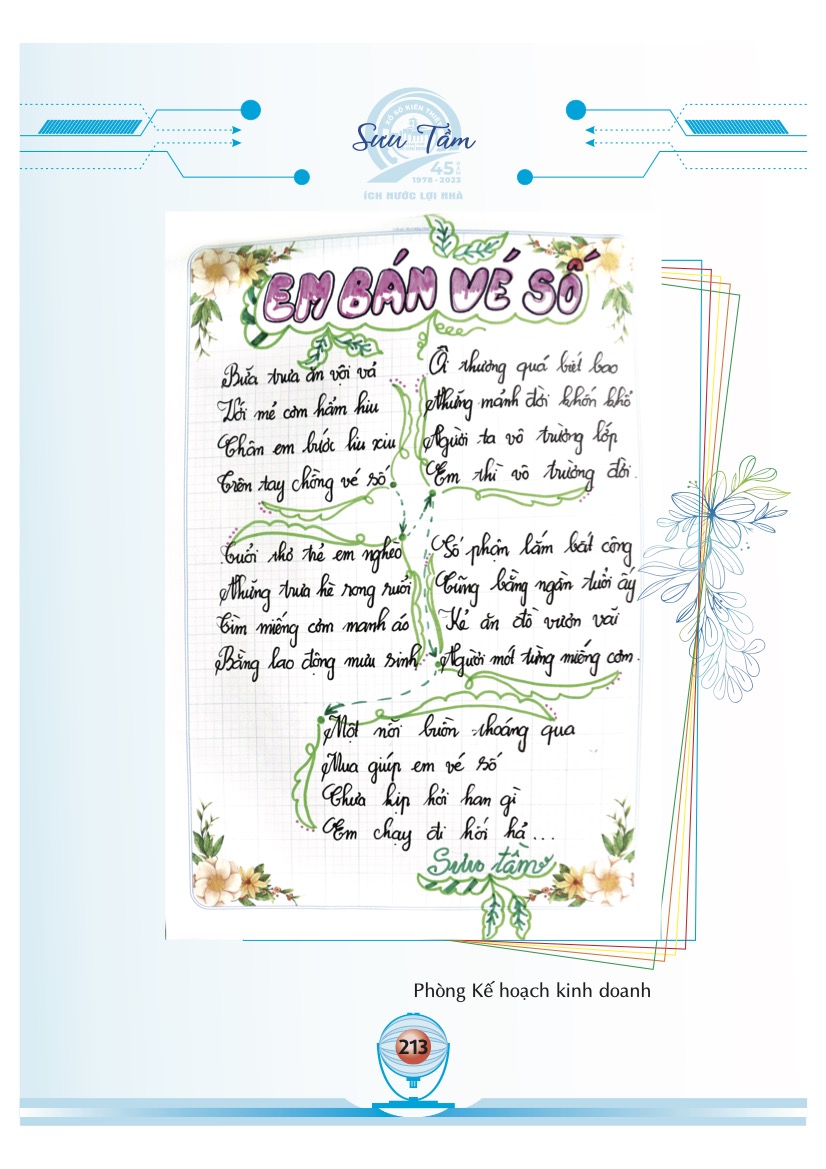 Sưu Tầm
XỔ SỐ KIẾN THIẾT
45 NĂM
1978 - 2023
ÍCH NƯỚC LỢI NHÀ
EM BÁN VÉ SỐ
Bữa trưa ăn vội vả
Với mẻ cơm hẩm hiu
Chân em bước liu xiu
Trên tay chồng vé số
Tuổi thơ thẻ em nghèo
Những trưa hè rong ruổi
Tìm miếng cơm manh áo
Bằng lao động mưu sinh
Ôi thương quá biết bao
Những mảnh đời khốn khổ
Người ta vô trường lớp
Em thì vô trường đời.
Số phận lắm bất công
Cũng bằng ngần tuổi ấy
Kẻ ăn đồ vương vãi
Người mót từng miếng cơm.
Một nỗi buồn thoáng qua
Mua giúp em vé số
Chưa kịp hỏi han gì
Em chạy đi hối hả...
Sưu tầm
Phòng Kế hoạch kinh doanh
213